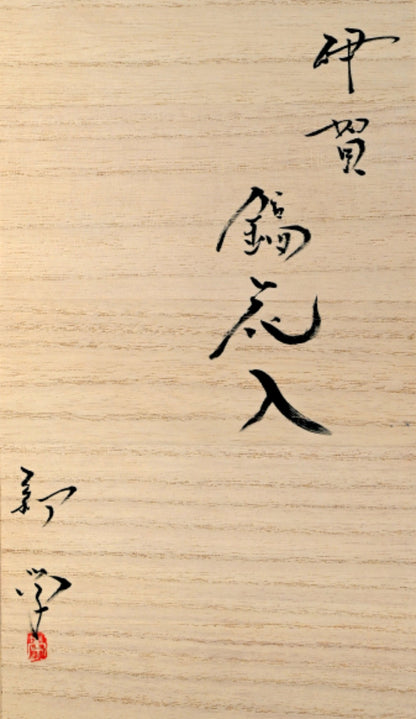 伊賀
鎬花入
新学